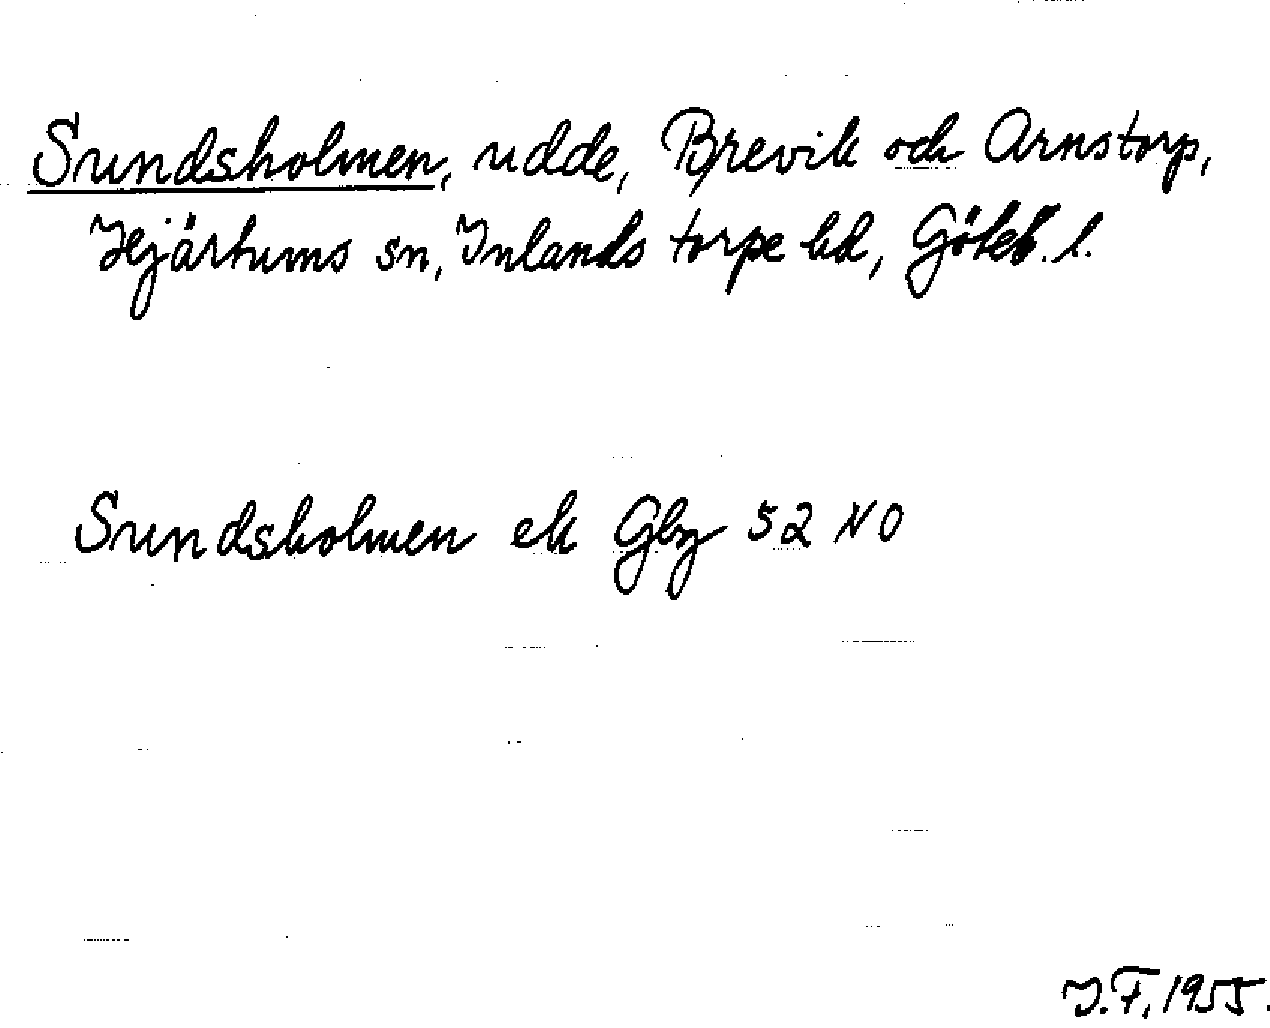 Sundsholmen, udde, Brevik och Arnstorp,
Hjärtums sn, Inlands torpe hd, Göteb. l.
Sundsholmen ek Gbg 52 NO
I.F, 1955.